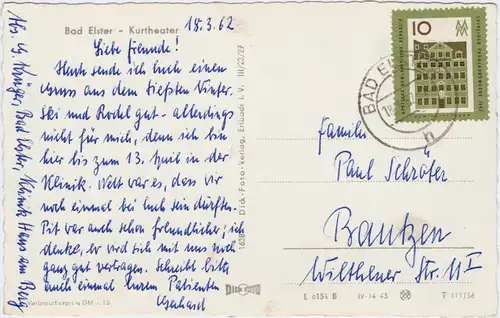 Bad Elster - Kurtheater
18.3.62
Liebe Freunde!
Heute sende ich Euch einen
Gruss aus dem tiefsten Winter.
Ski und Rodel gut - allerdings
nicht für mich, denn ich bin
hier bis zum 13. April in der
Klinik. Nett war es, dass wir
noch einmal bei Euch sein durften.
Pit war auch schon freundlicher; ich
denke, er wird sich mit uns noch
ganz gut vertragen. Schreibt bitte
auch einmal Eurem Patienten
Gerhard
Abs. G. Krüger, Bad Elster, Klinik Haus am Berg
Verbraucherpreis DM -,15
Dick-Foto-Verlag, Erlbach i. V. III/23/27
DICK FOTO
10
MM
BAD EL
Familie
Paul Schröter
Bautzen
Wilthener Str. 11 I
L 0154 B IV-14-45 T 111/56